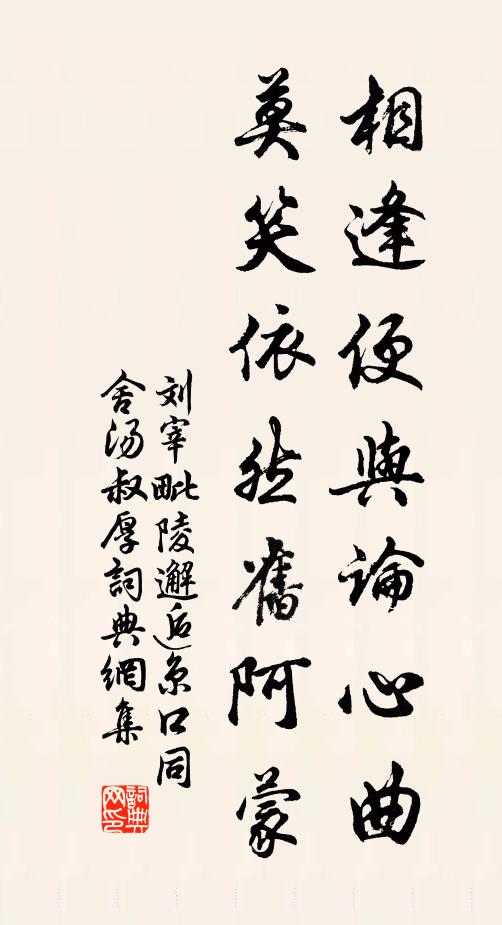 相逢便與論心曲
莫笑依然舊阿蒙
刘宰毗陵邂逅京口同
舍汤叔厚詞典網集
詞典网印